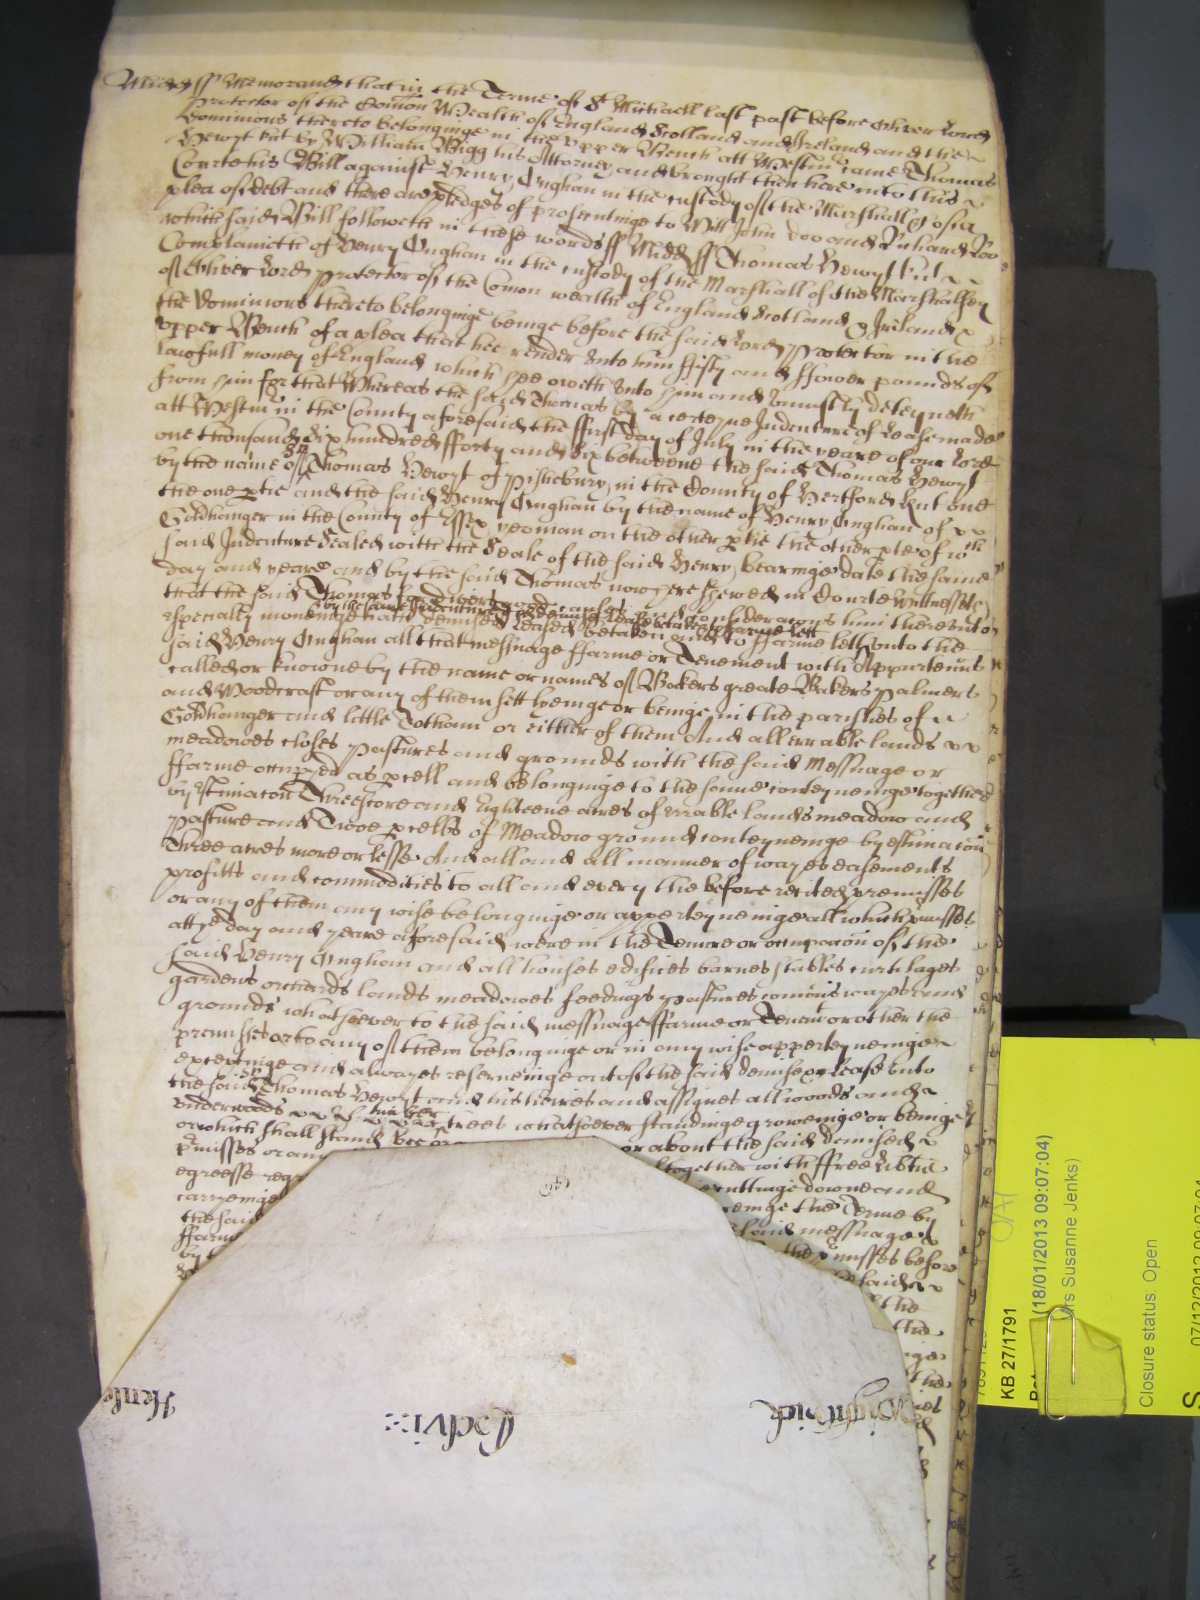 Midd ss Memorand that in the Terme of St Michaell last past before Oliver Lord
Protector of the Comon Wealth of England Scotland and Ireland and the
Dominions thereto belonginge in the upper Bench att Westm came Thomas
Hewyt knt by William Bigg his Attorney and brought then here into this
Court his Bill against Henry Ingham in the custody of the Marshall &c of a
plea of debt and there are pledges of prosecutinge to witt John Doo and Richard Roo
which said Bill followeth in these words ss Midd ss Thomas Hewyt knt
Complaineth of Henry Ingham in the custody of the Marshall of the Marshalsey
of Oliver Lord Protector of the Comon wealth of England Scotland & Ireland &
the Dominions thereto belonginge beinge before the said Lord Protector in the
upper Bench of a plea that hee render unto him fifty and ffower pounds of
lawfull money of England which hee oweth unto him and uniustly deteyneth
from him for that Whereas the said Thomas by a certeyne Indenture of Lease made
att Westm in the County aforesaid the ffirst day of July in the yeare of our Lord
one thousand Six hundred fforty and Six betweene the said Thomas Hewyt
by the name of Sr Thomas Hewyt of Pishiebury in the County of Hertford knt one
the one ptie and the said Henry Ingham by the name of Henry Ingham of
Goldhanger in the County of Essex yeoman on the other ptie the other pte of wch
said Indenture Sealed with the Seale of the said Henry bearinge date the same
day and yeare and by the said Thomas now here shewed in Courte Wittnesseth
that the said Thomas for divers good causes and consideracions him thereunto
by the same Indenture did demise lease betake & to farme lett
especially moveinge hath demised leased betaken and to ffarme lett unto the
said Henry Ingham all that messuage ffarme or Tenement with Appurtenncs
called or knowne by the name or names of Bakers greate Bakers Palmers
and Woodcrast or any of them sett lyeinge or beinge in the parishes of
Goldhanger and little Totham or either of them And all errable lands
meadowes closes pastures and grounds with the said Messuage or
ffarme occupyed as pcell and belonginge to the same conteyneinge together
by Estimacon Threescore and Eighteene acres of errable lands meadow and
pasture and Twoe pcells of Meadow ground conteyneinge by estimacon
Three acres more or lesse And all and all manner of wayes easements
profitts and commodities to all and every the before recited premisses
or any of them any wise belonginge or apperteyneinge all which pmisses
att ye day and yeare aforesaid were in the Tenure or occupacon of the
said Henry Ingham and all houses edifices barnes stables curtilages
gardens orchards lands meadowes feedings pastures comons wayes and
grounds whatsoever to the said messuage ffarme or Tenemt or other the
premisses or to any of them belonginge or in any wise apperteyneinge
exceptinge and alwayes reserveinge out of the said demise or Lease unto
the said Sr Thomas Hewyt and his heires and assignes all woods and
underwoods timber trees whatsoever standinge groweinge or beinge
or which shall stand or about the said demised
pmisses or any together with ffree Libtie
egresse cuttinge downe and
carryeinge the Terme by
the said said messuage
ffarme the pmisses before
by said
the
the
Henle
Cxlvi
Wightwick
KB 27/1791
(18/01/2013 09:07:04)
rs Susanne Jenks)
Closure status: Open